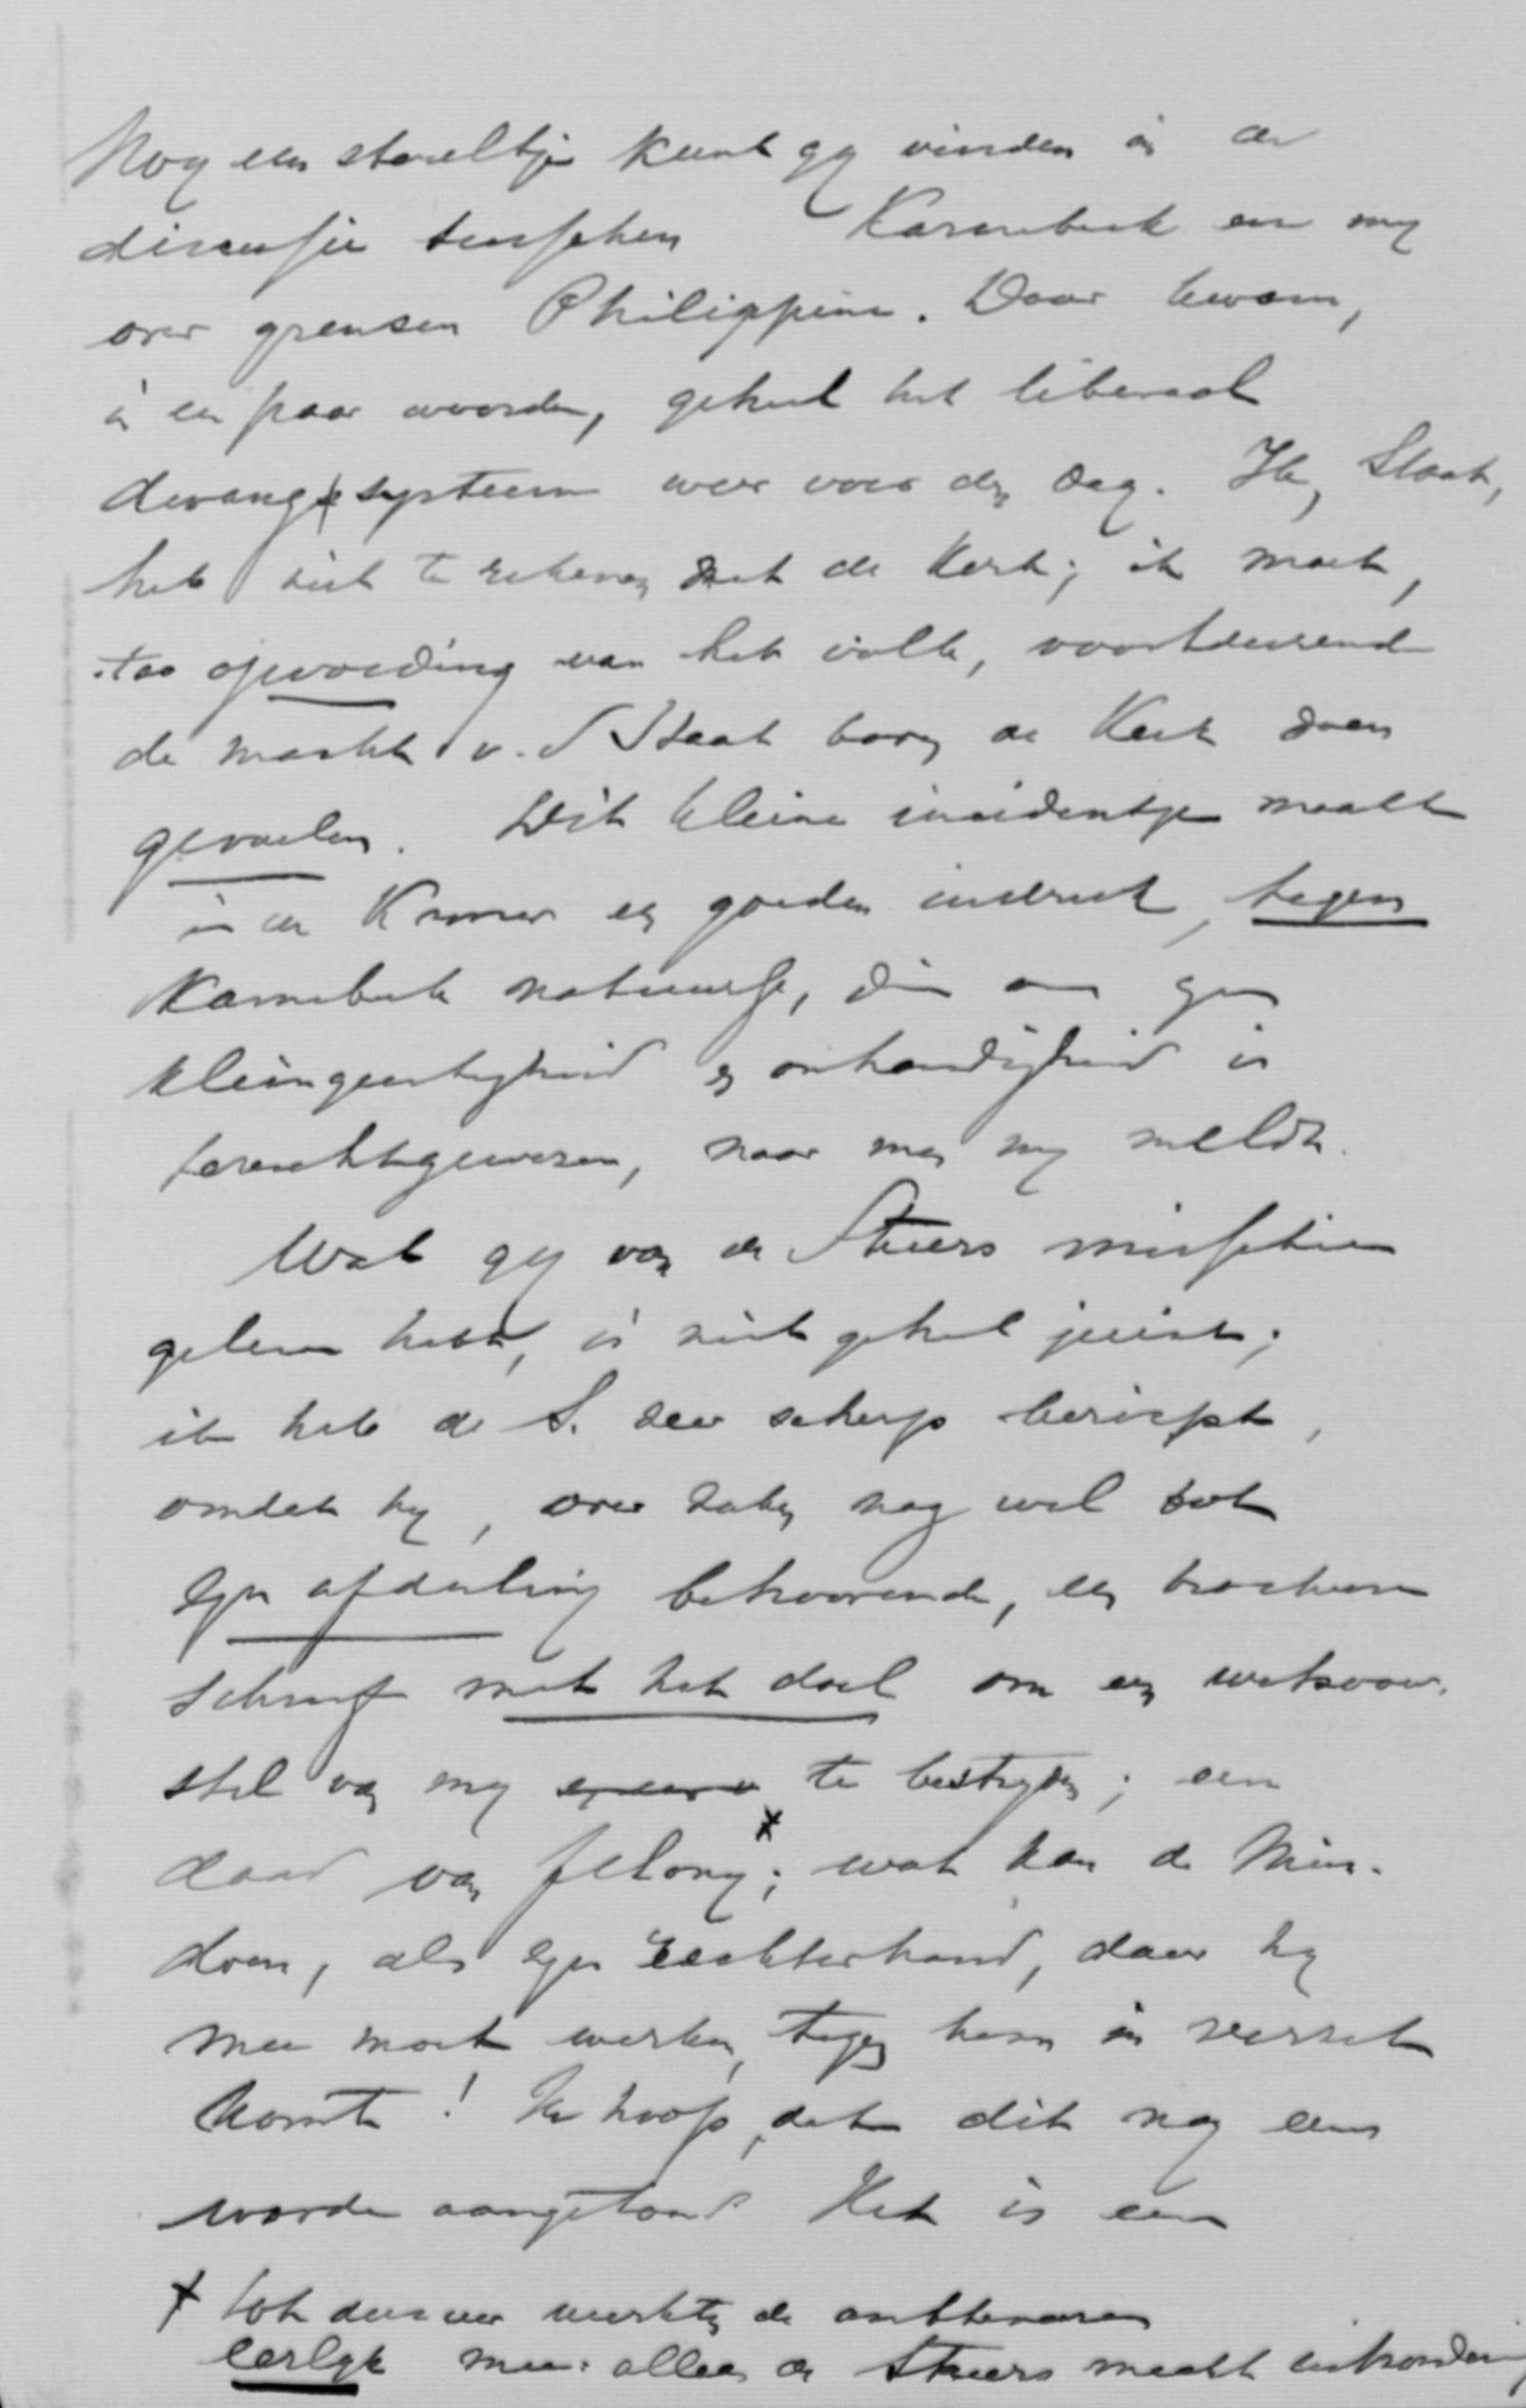 Nog een staaltje kunt gij vinden in de
discussie tusschen Karnebeek en mij
over grenzen Philippine. Daar kwam,
in een paar woorden, geheel het liberaal
dwangsysteem weer voor den dag. Ik, Staat,
heb niet te rekenen met de Kerk; ik moet,
tot opvoeding van het volk, voortdurend
de macht v. d Staat boven de Kerk doen
gevoelen. Dit kleine incidentje maakte
in de Kamer een goeden indruk, tegen
Karnebeek natuurlijk, die om zijn
kleingeestigheid en onhandigheid is
terechtgewezen, naar men mij meldt.
Wat gij van de Stuers misschien
gelezen hebt, is niet geheel juist;
ik heb de S. zeer scherp berispt,
omdat hij, over zaken nog wel tot
zijn afdeeling behoorende, een brochure
schreef met het doel om een wetsvoor-
stel van mij te bestrijden; een
daad van felony*; wat kan de Min.
doen, als zijn rechterhand, daar hij
mee moet werken, tegen hem in verzet
komt! Ik hoop, dat dit nog eens
worde aangetoond. Het is een
* Tot dusver werkten de ambtenaren
eerlijk mee: alleen de Stuers maakt uitzondering